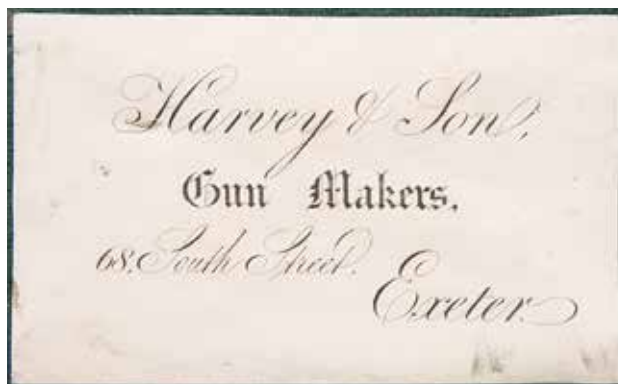 Harvey & Son,
Gun Makers.
68, South Street.
Exeter